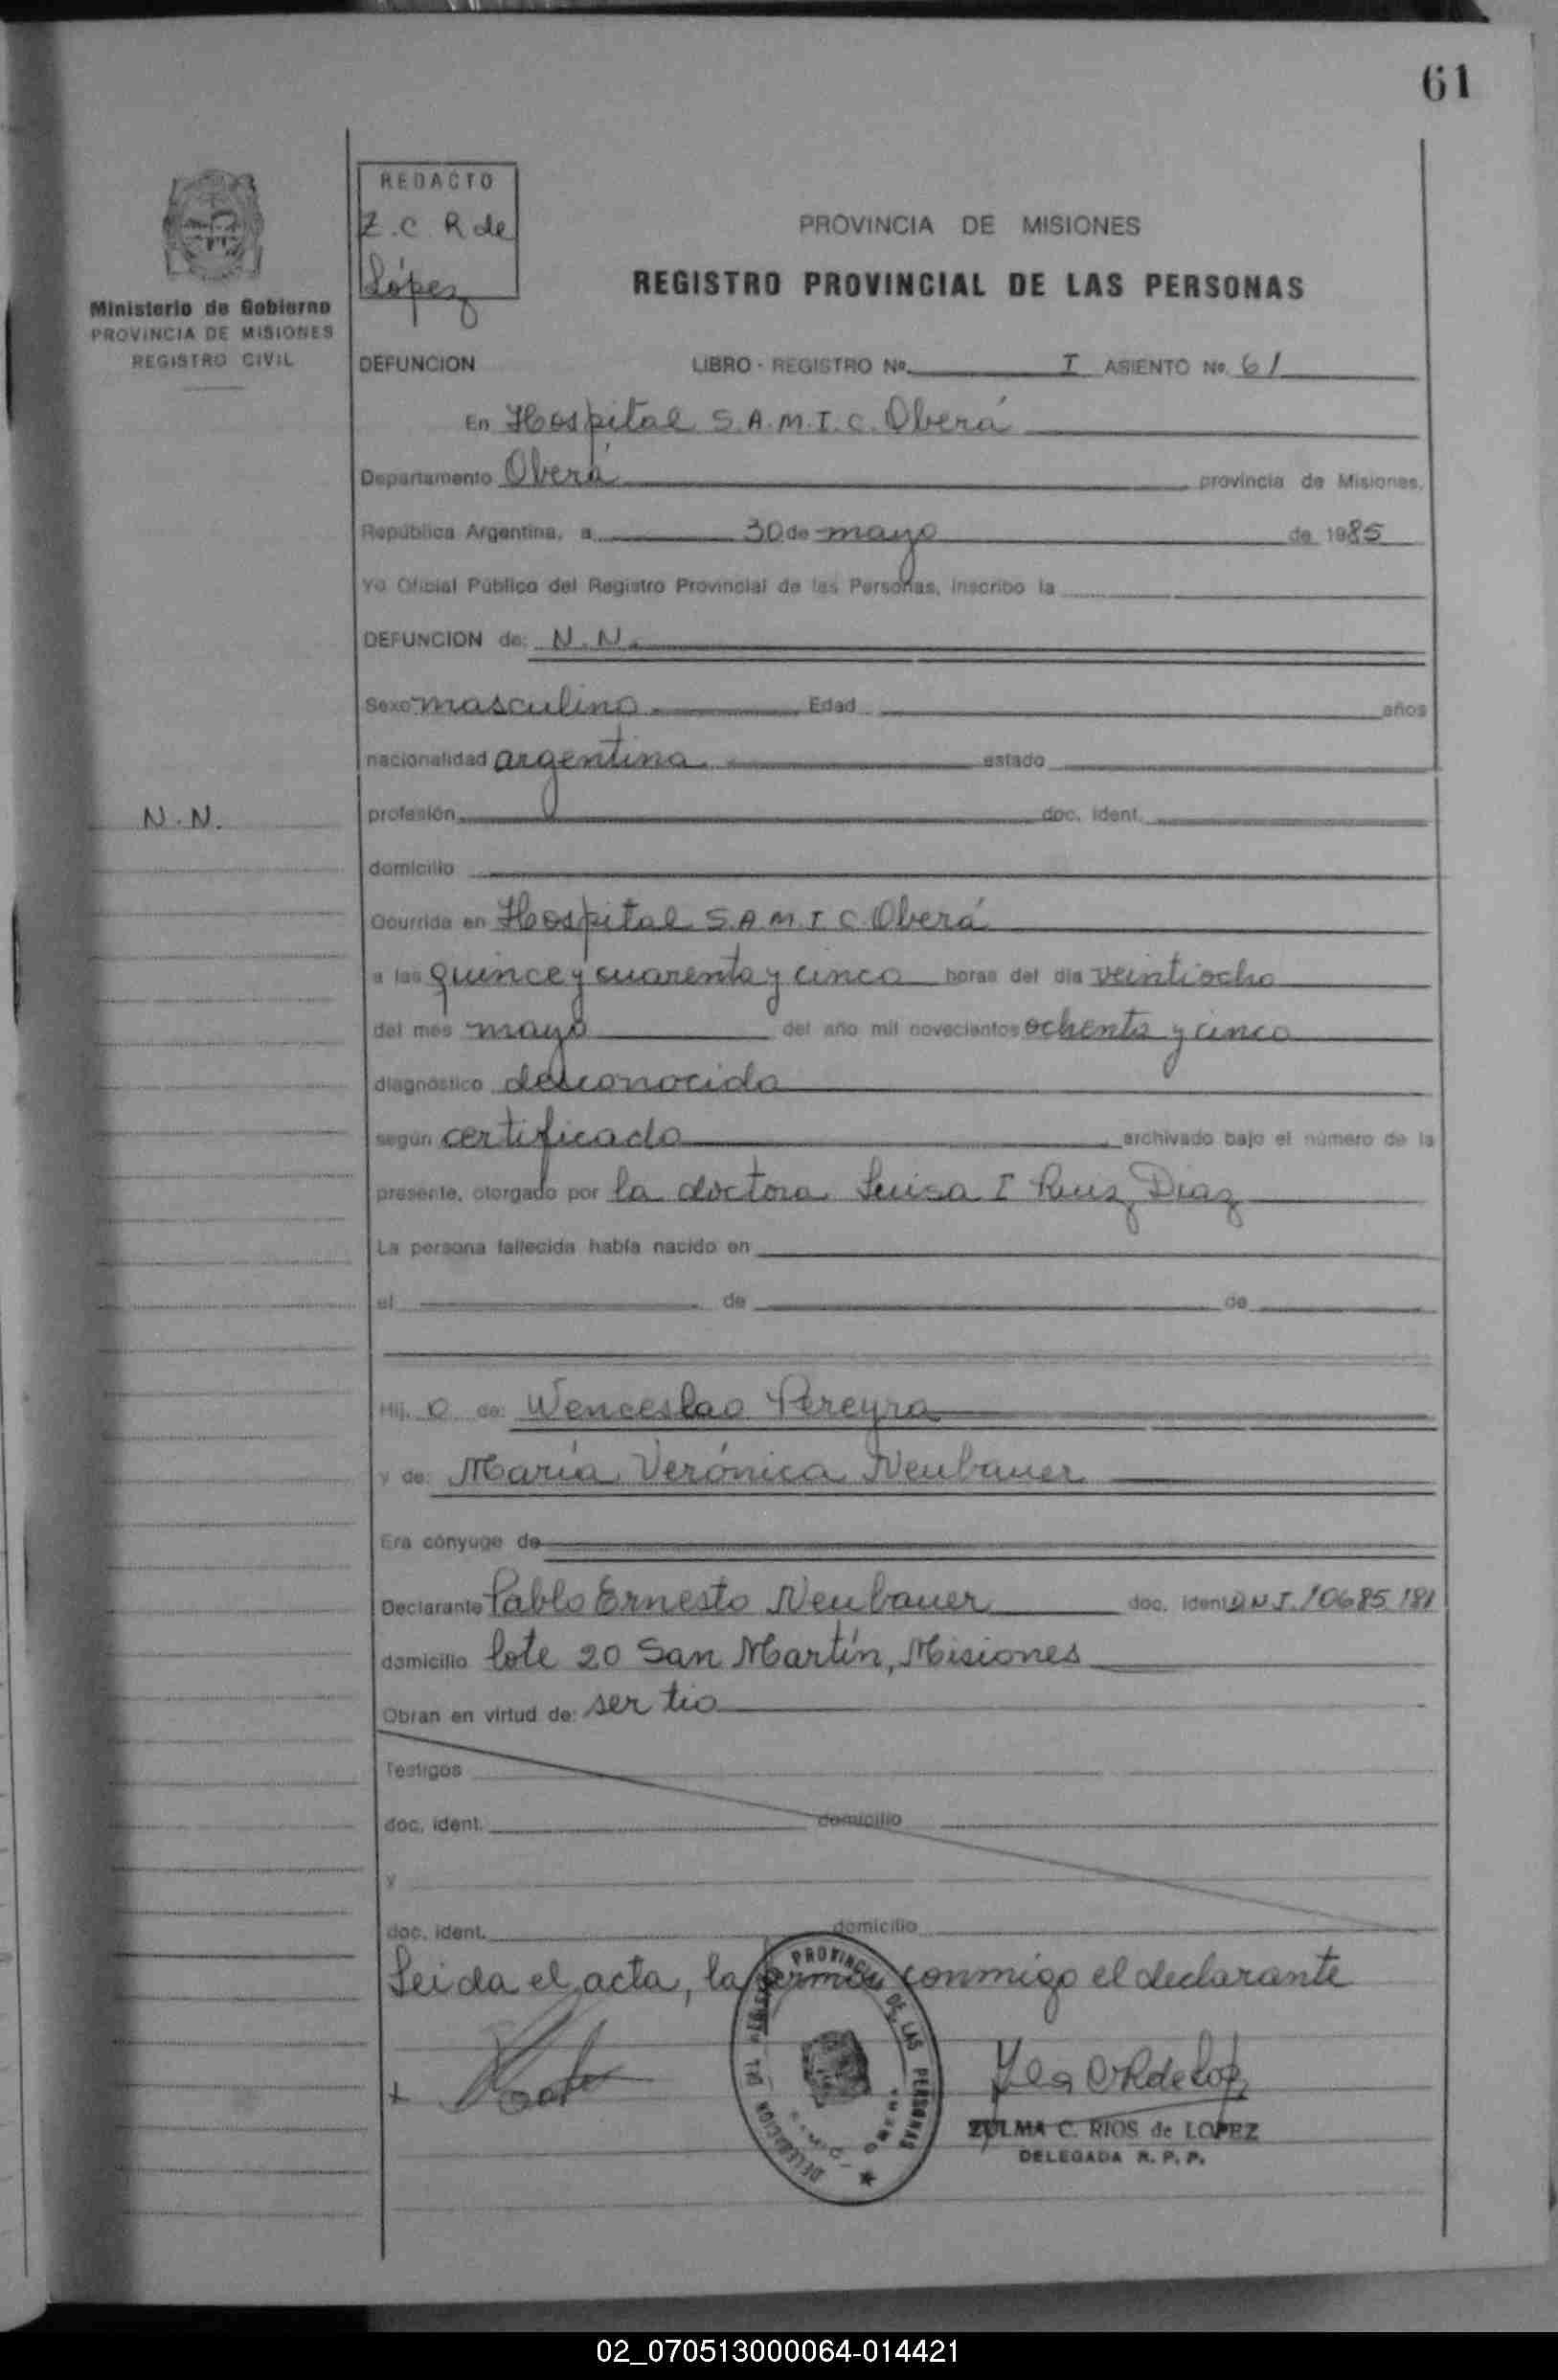 61
REDACTO
Z. C R de
López
PROVINCIA DE MISIONES
REGISTRO PROVINCIAL DE LAS PERSONAS
Ministerio de Gobierno
PROVINCIA DE MISIONES
REGISTRO CIVIL
DEFUNCION LIBRO - REGISTRO No. I ASIENTO No. 61
En Hospital S.A.M.I.C. Oberá
Departamento Oberá provincia de Misiones,
República Argentina, a 30 de mayo de 1985
Yo Oficial Público del Registro Provincial de las Personas, inscribo la
DEFUNCION de: N.N.
Sexo masculino Edad años
nacionalidad argentina estado
N.N.
profesión doc. ident.
domicilio
Ocurrida en Hospital S.A.M.I.C. Oberá
a las quince y cuarenta y cinco horas del día veintiocho
del mes mayo del año mil novecientos ochenta y cinco
diagnóstico desconocido
según certificado archivado bajo el número de la
presente, otorgado por la doctora Luisa I Ruiz Diaz
La persona fallecida había nacido en
el de de
Hij. o de: Wenceslao Pereyra
y de: María Verónica Neubauer
Era cónyuge de
Declarante Pablo Ernesto Neubauer doc. ident D.N.I. 10685.181
domicilio lote 20 San Martín, Misiones
Obran en virtud de: ser tio
Testigos
doc. ident. domicilio
y
doc. ident. domicilio
Leida el acta, la firma conmigo el declarante
PROVINCIAL DE LAS PERSONAS
DELEGACION
ZULMA C. RIOS de LOPEZ
DELEGADA R. P. P.
02_070513000064-014421